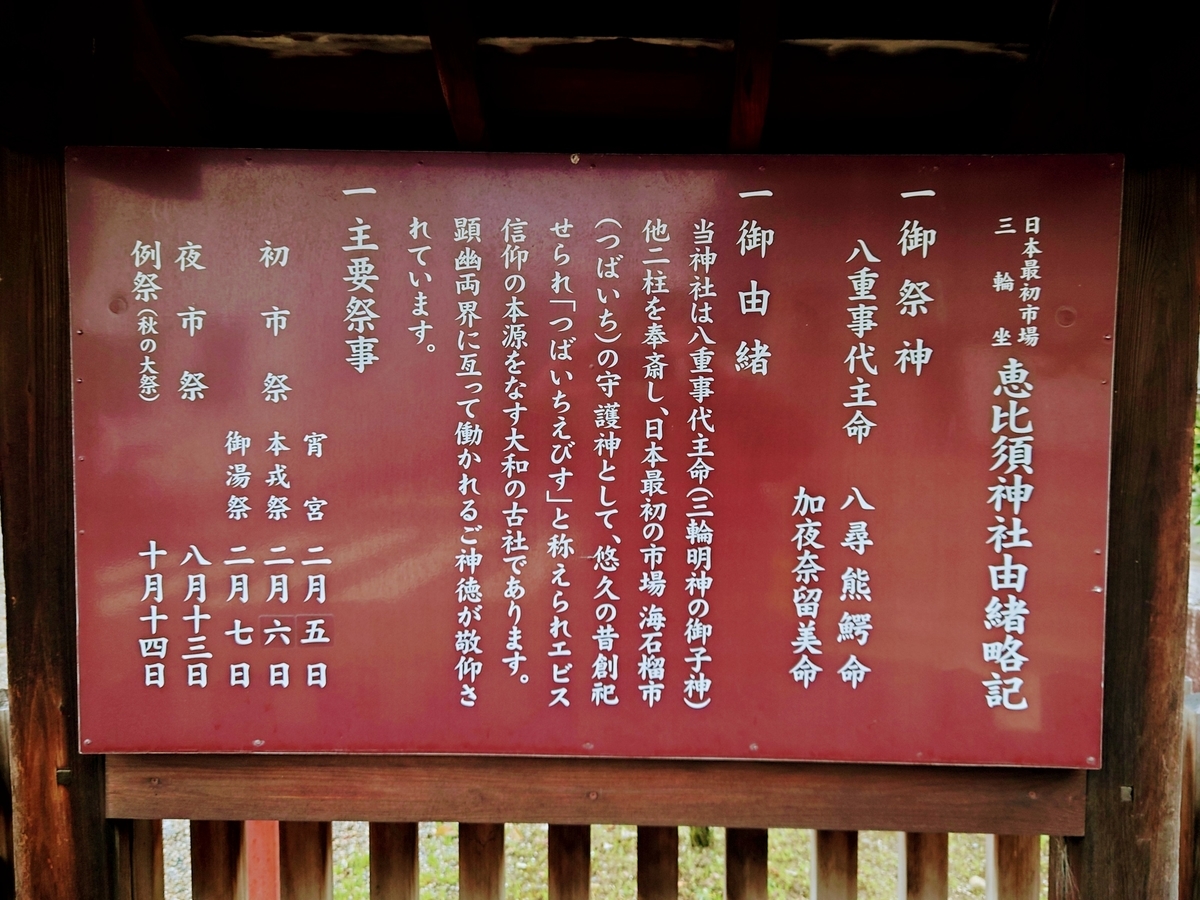 日本最初市場
三輪坐
恵比須神社由緒略記
一御祭神
八重事代主命　八尋熊鰐命
加夜奈留美命
一御由緒
当神社は八重事代主命(三輪明神の御子神)
他二柱を奉斎し、日本最初の市場 海石榴市
(つばいち)の守護神として、悠久の昔創祀
せられ「つばいちえびす」と称えられエビス
信仰の本源をなす大和の古社であります。
顕幽両界に亙って働かれるご神徳が敬仰さ
れています。
一主要祭事
宵宮　二月五日
初市祭　本戎祭　二月六日
御湯祭　二月七日
夜市祭　八月十三日
例祭(秋の大祭)　十月十四日